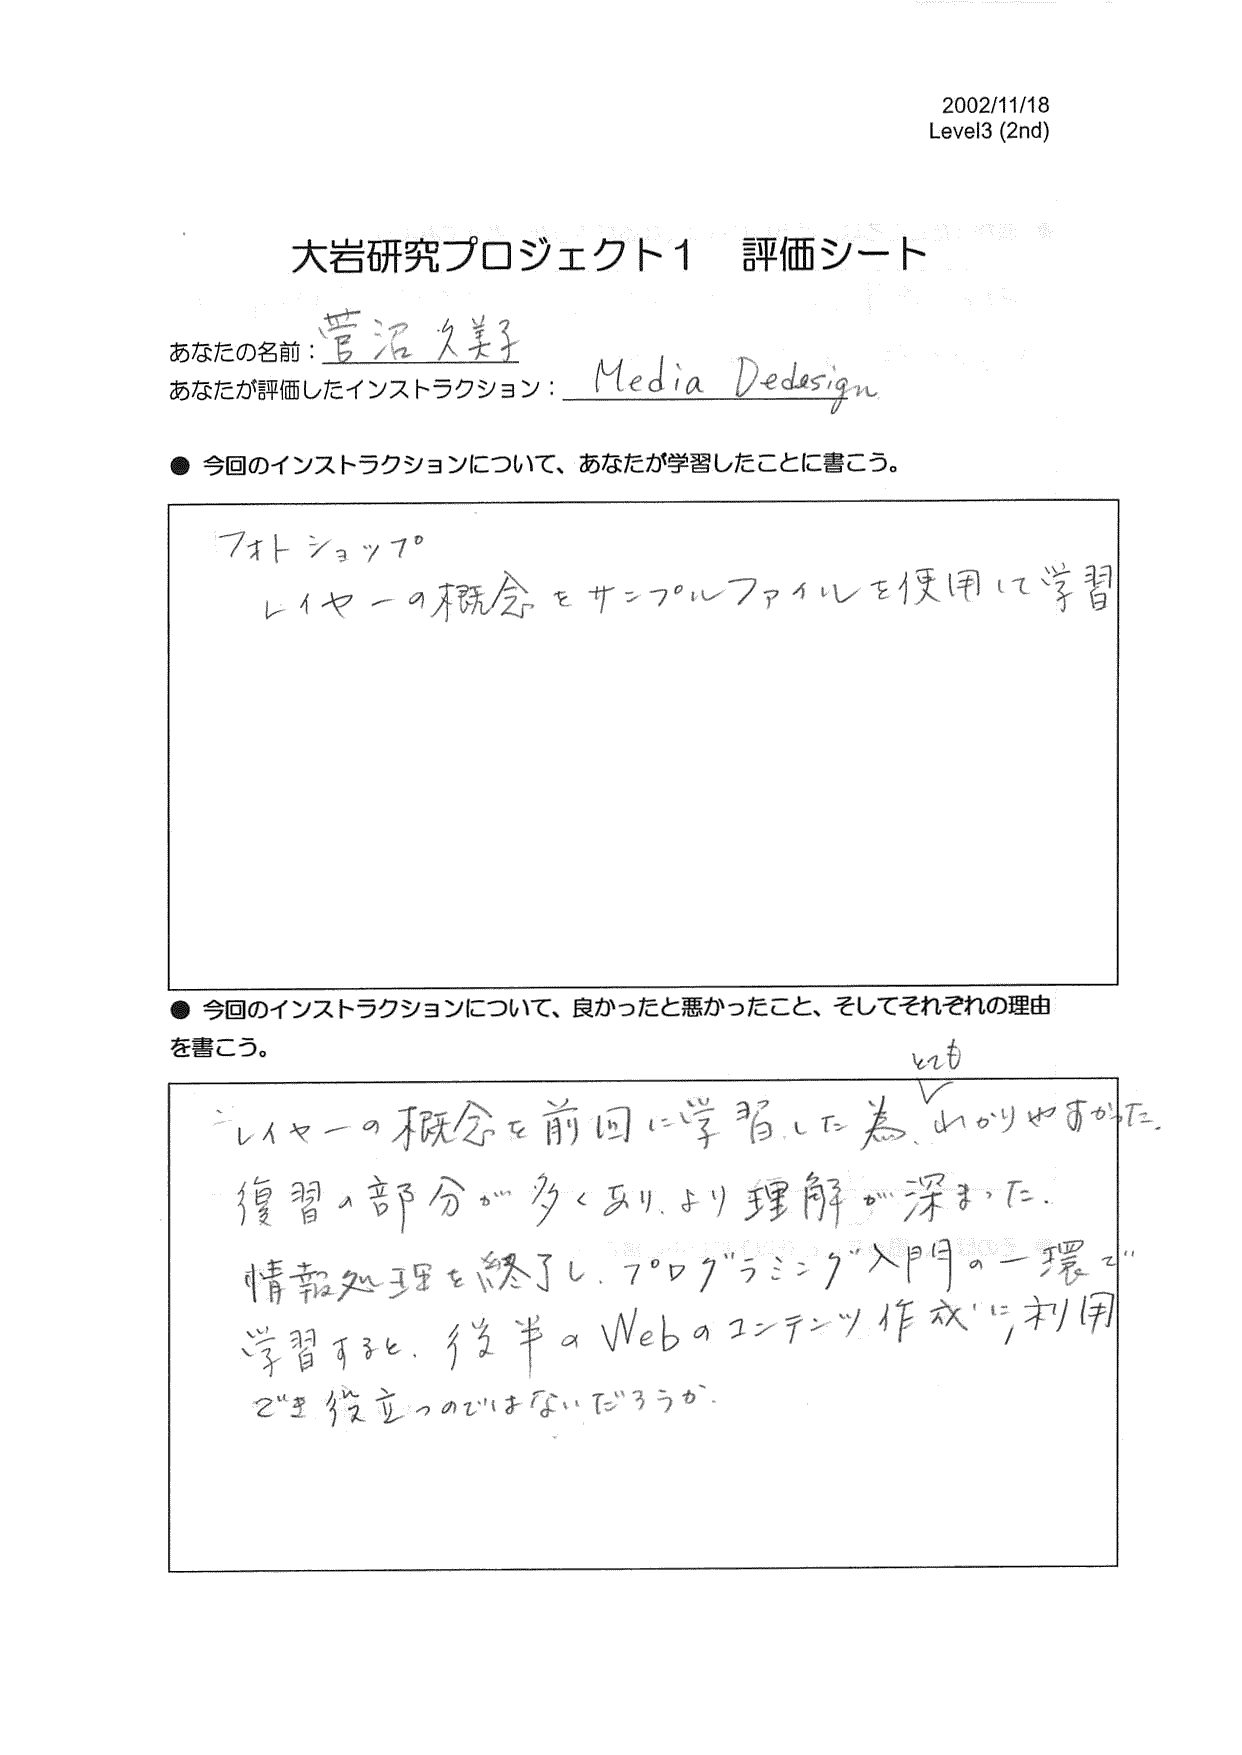 2002/11/18
Level3 (2nd)
大岩研究プロジェクト1　評価シート
あなたの名前：菅沼 久美子
あなたが評価したインストラクション： Media Dedesign
● 今回のインストラクションについて、あなたが学習したことに書こう。
フォトショップ
レイヤーの概念をサンプルファイルを使用して学習
● 今回のインストラクションについて、良かったと悪かったこと、そしてそれぞれの理由
を書こう。
とても
レイヤーの概念を前回に学習した為、わかりやすかった。
復習の部分が多くあり、より理解が深まった。
情報処理を終了し、プログラミング入門の一環で
学習すると、後半のWebのコンテンツ作成に利用
でき役立つのではないだろうか。